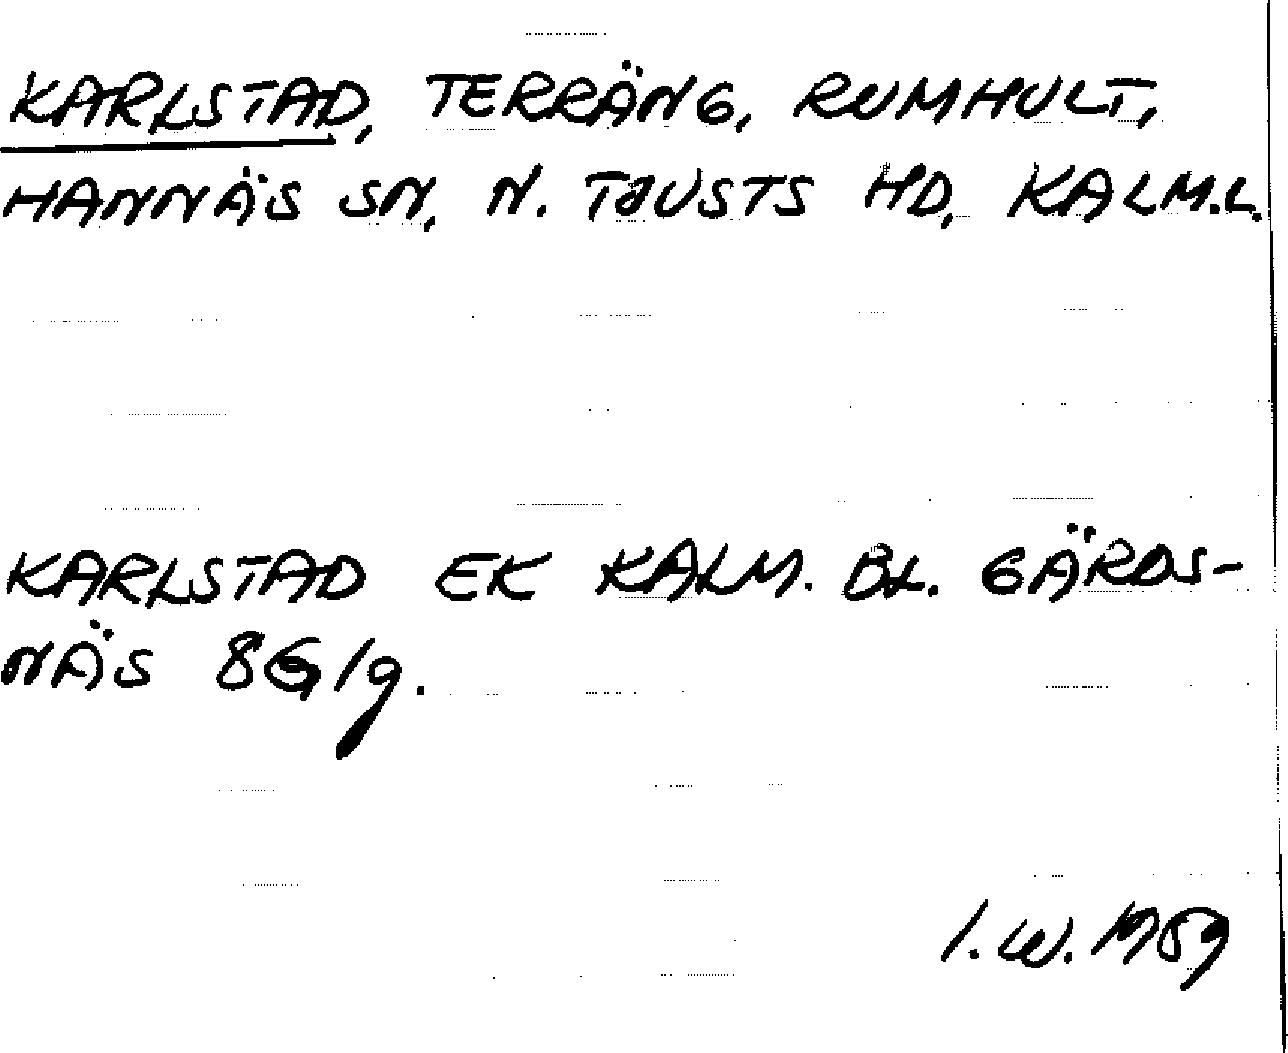 KARLSTAD, TERRÄNG, RUMHULT,
HANNÄS SN, N. TJUSTS HD, KALM.L.
KARLSTAD EK KALM. BL. GÄRDS-
NÄS 8G/g.
I.W. 1989